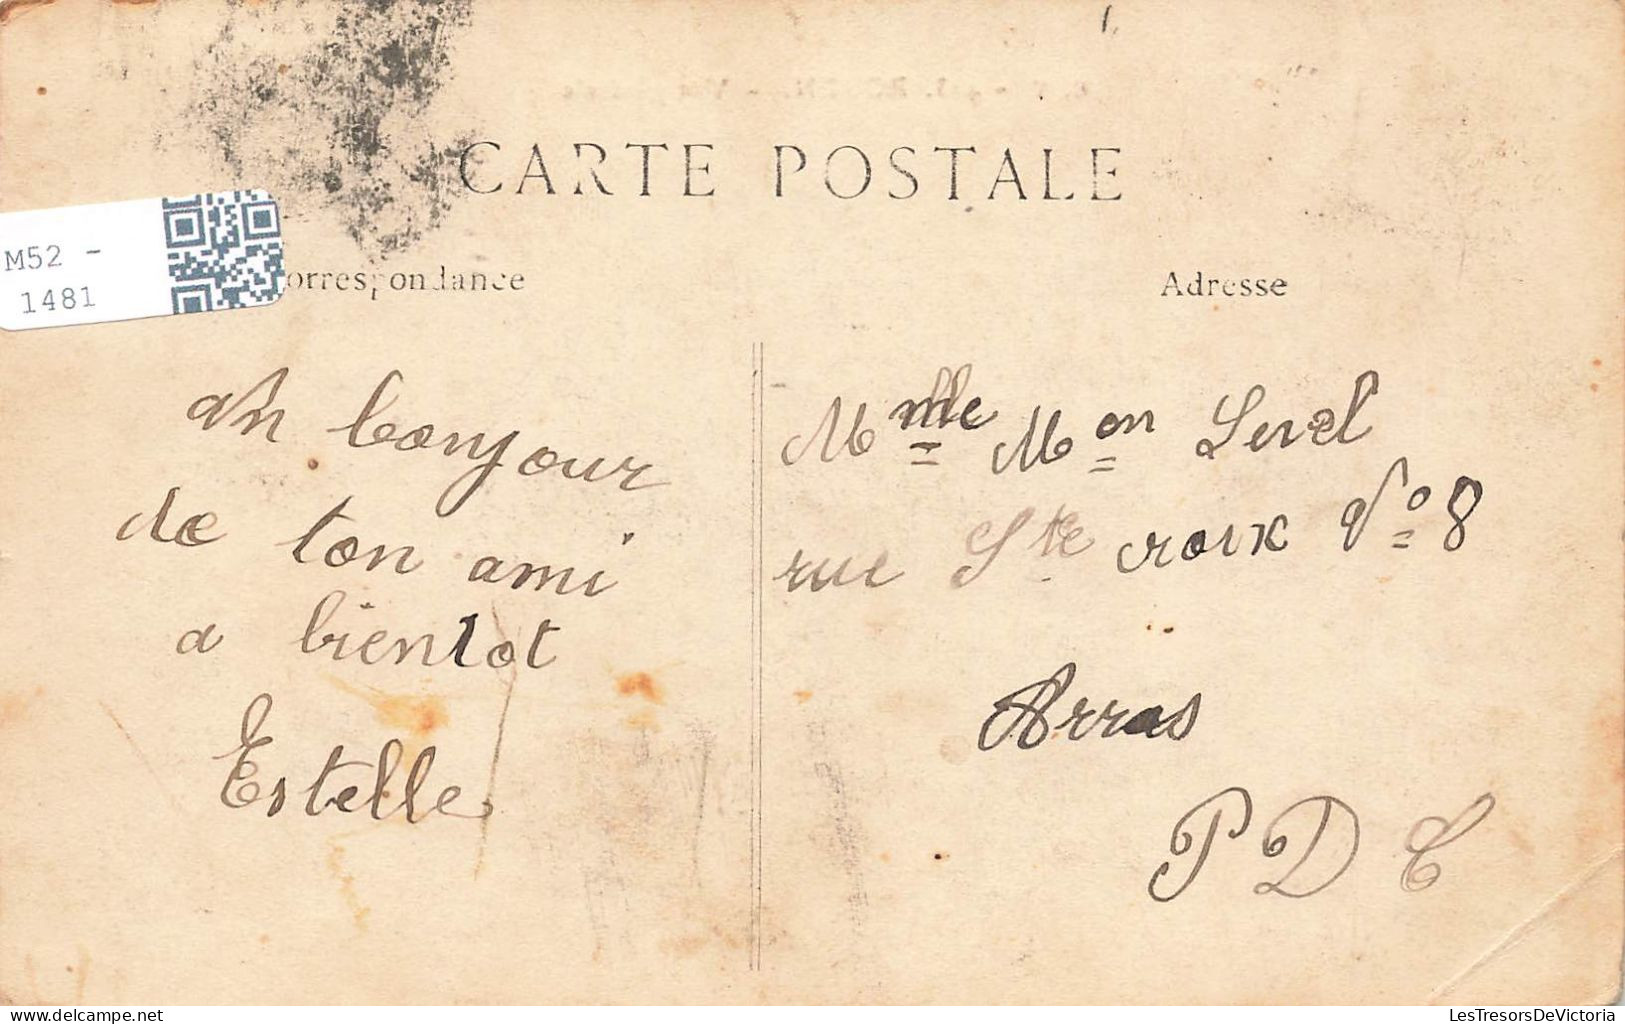 CARTE POSTALE
M52 -
1481
orrespondance
Adresse
un bonjour
de ton ami
a bientot
Estelle
Mmlle Mon
rue Ste croix No 8
Arras
P D C
LesTresorsDeVictoria